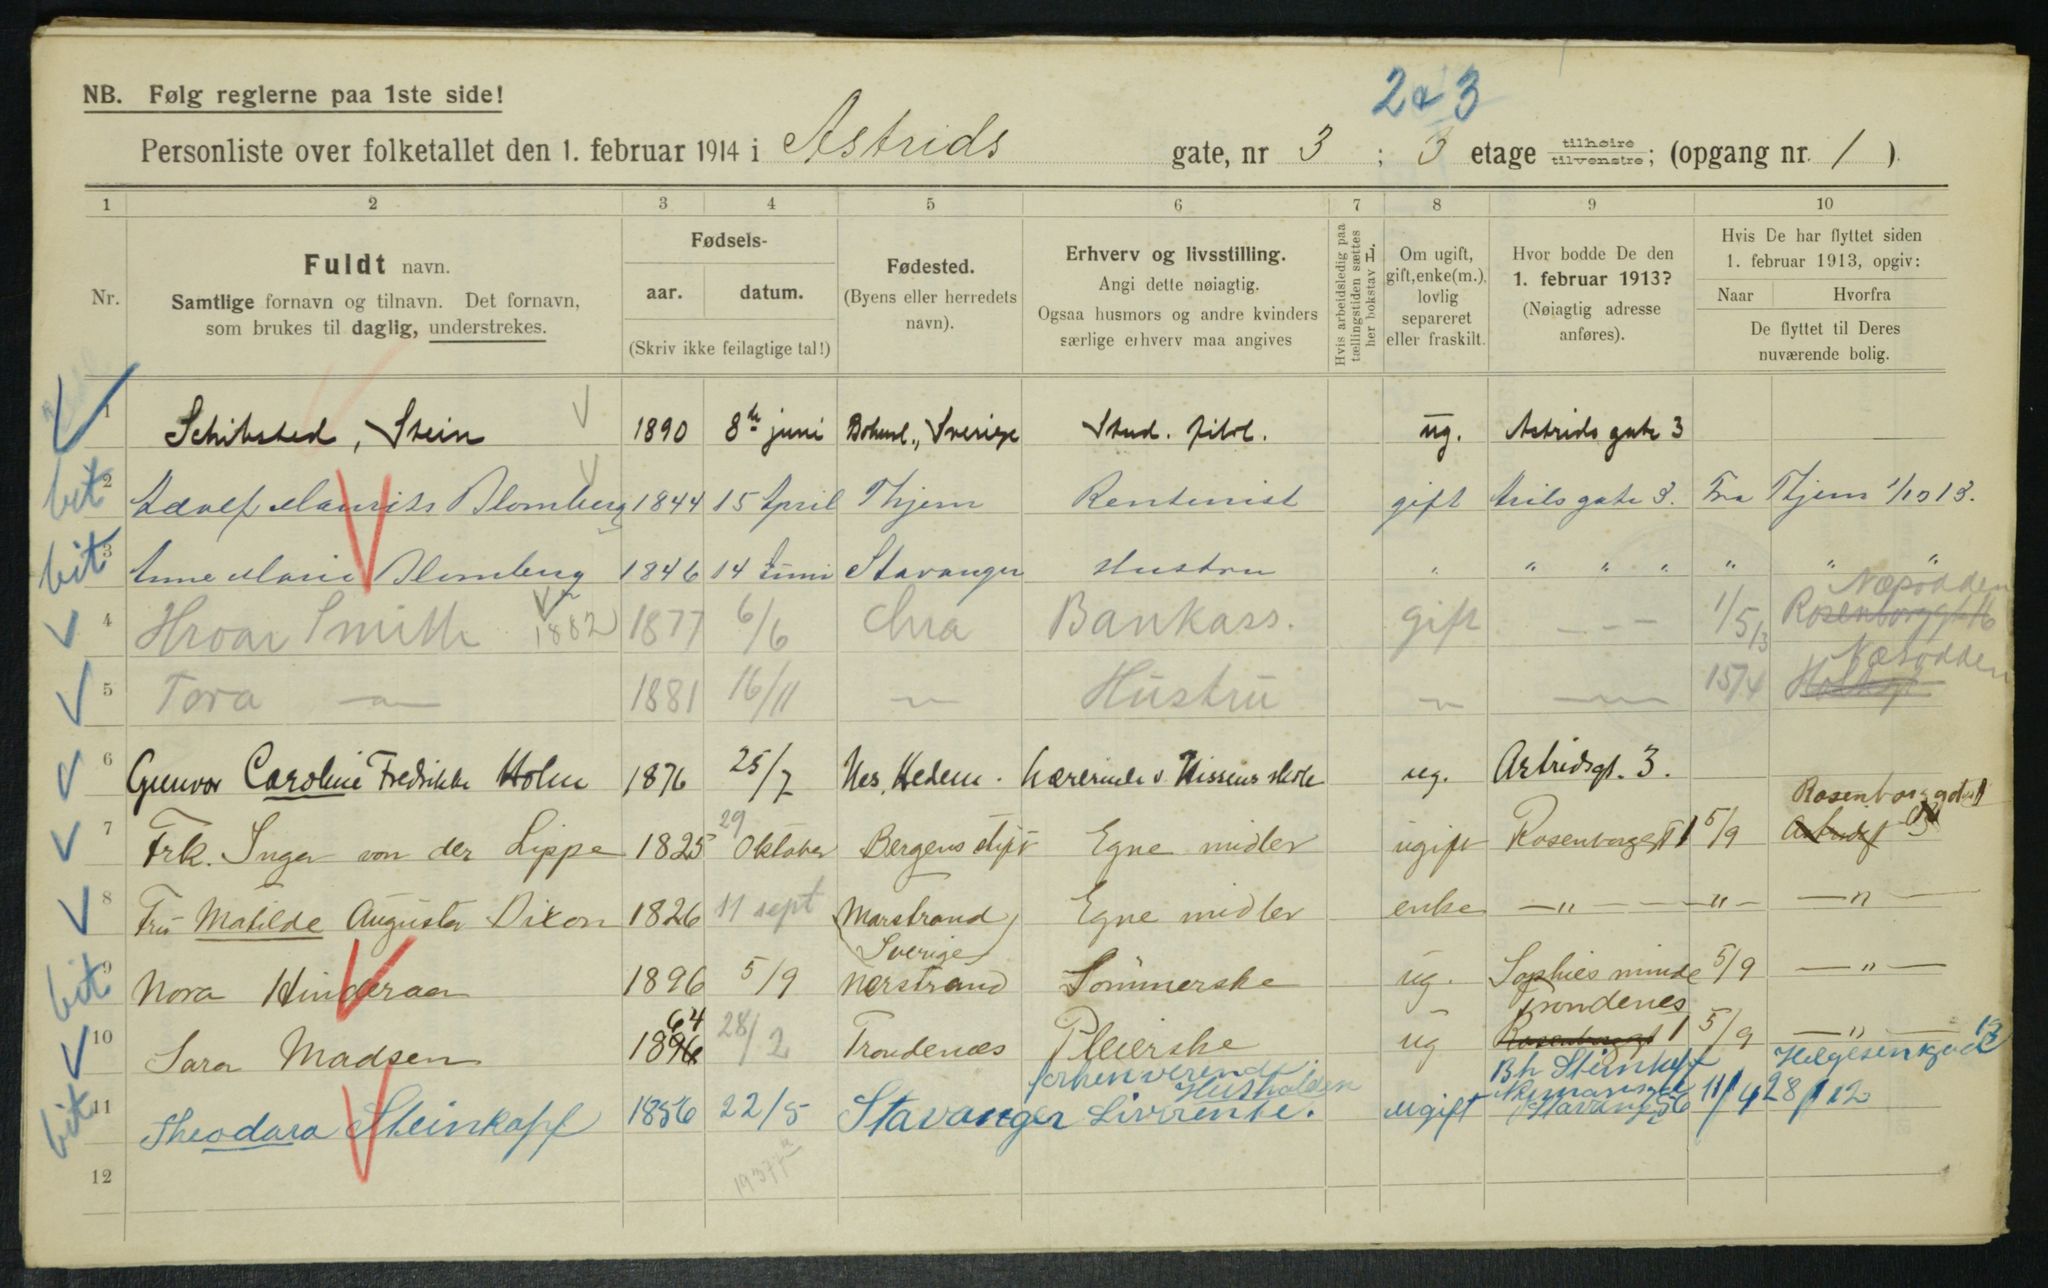 2 & 3
NB. Følg reglerne paa 1ste side!
Personliste over folketallet den 1. februar 1914 i Astrids gate, nr 3 ; 3 etage tilhøire tilvenstre; (opgang nr. 1 ).
1 2 3 4 5 6 7 8 9 10
Nr.
Fuldt navn.
Samtlige fornavn og tilnavn. Det fornavn,
som brukes til daglig, understrekes.
Fødsels-
aar. datum.
(Skriv ikke feilagtige tal!)
Fødested.
(Byens eller herredets
navn).
Erhverv og livsstilling.
Angi dette nøiagtig.
Ogsaa husmors og andre kvinders
særlige erhverv maa angives
Hvis arbeidsledig paa
tællingstiden sættes
her bokstav L.
Om ugift,
gift, enke(m.),
lovlig
separeret
eller fraskilt.
Hvor bodde De den
1. februar 1913?
(Nøiagtig adresse
anføres).
Hvis De har flyttet siden
1. februar 1913, opgiv:
Naar Hvorfra
De flyttet til Deres
nuværende bolig.
1 Schibsted, Stein 1890 8de juni Bohusl., Sverige Stud. filol. ug. Astrids gate 3
bit 2 Adolf Maurits Blomberg 1844 15 April Thjem Rentenist gift gate 3. Fra Thjem 1/10 13.
bit 3 Anne Marie Blomberg 1846 14 Juni Stavanger Hustru " " " " " " "
4 Hroar Smith 1882 1877 6/6 Chra Bankass. gift — — — 1/5 13 Rosenborggt 16 Næsodden
5 Tora — 1881 16/11 — Hustru — — 15/4 Holtegt Næsodden
6 Gunvor Caroline Fredrikke Holm 1876 25/7 Nes, Hedem. Lærerinde v. Nissens skole ug. Astridsgt. 3.
7 Frk. Inga von der Lippe 1825 29 Oktober Bergens stift Egne midler ugift Rosenborggt 1 5/9 Rosenborggt 1
8 Fru Matilde Augusta Dixon 1826 11 sept Marstrand Sverige Egne midler enke — " — — — " — — " —
bit 9 Nora Hinderaa 1896 5/9 Nerstrand Sömmerske ug. Sophies minde 5/9 — " —
10 Sara Madsen 1896 64 28/2 Trondenæs Pleierske ug Rosenborggt 1 Trondenes 5/9 — " —
bit 11 Theodora Steinkopf 1856 22/5 Stavanger Livrente. forhenverend Husholder ugift Bh Steinkopf Stavanger 56 11/4 28/12 Helgesensgade 12
12